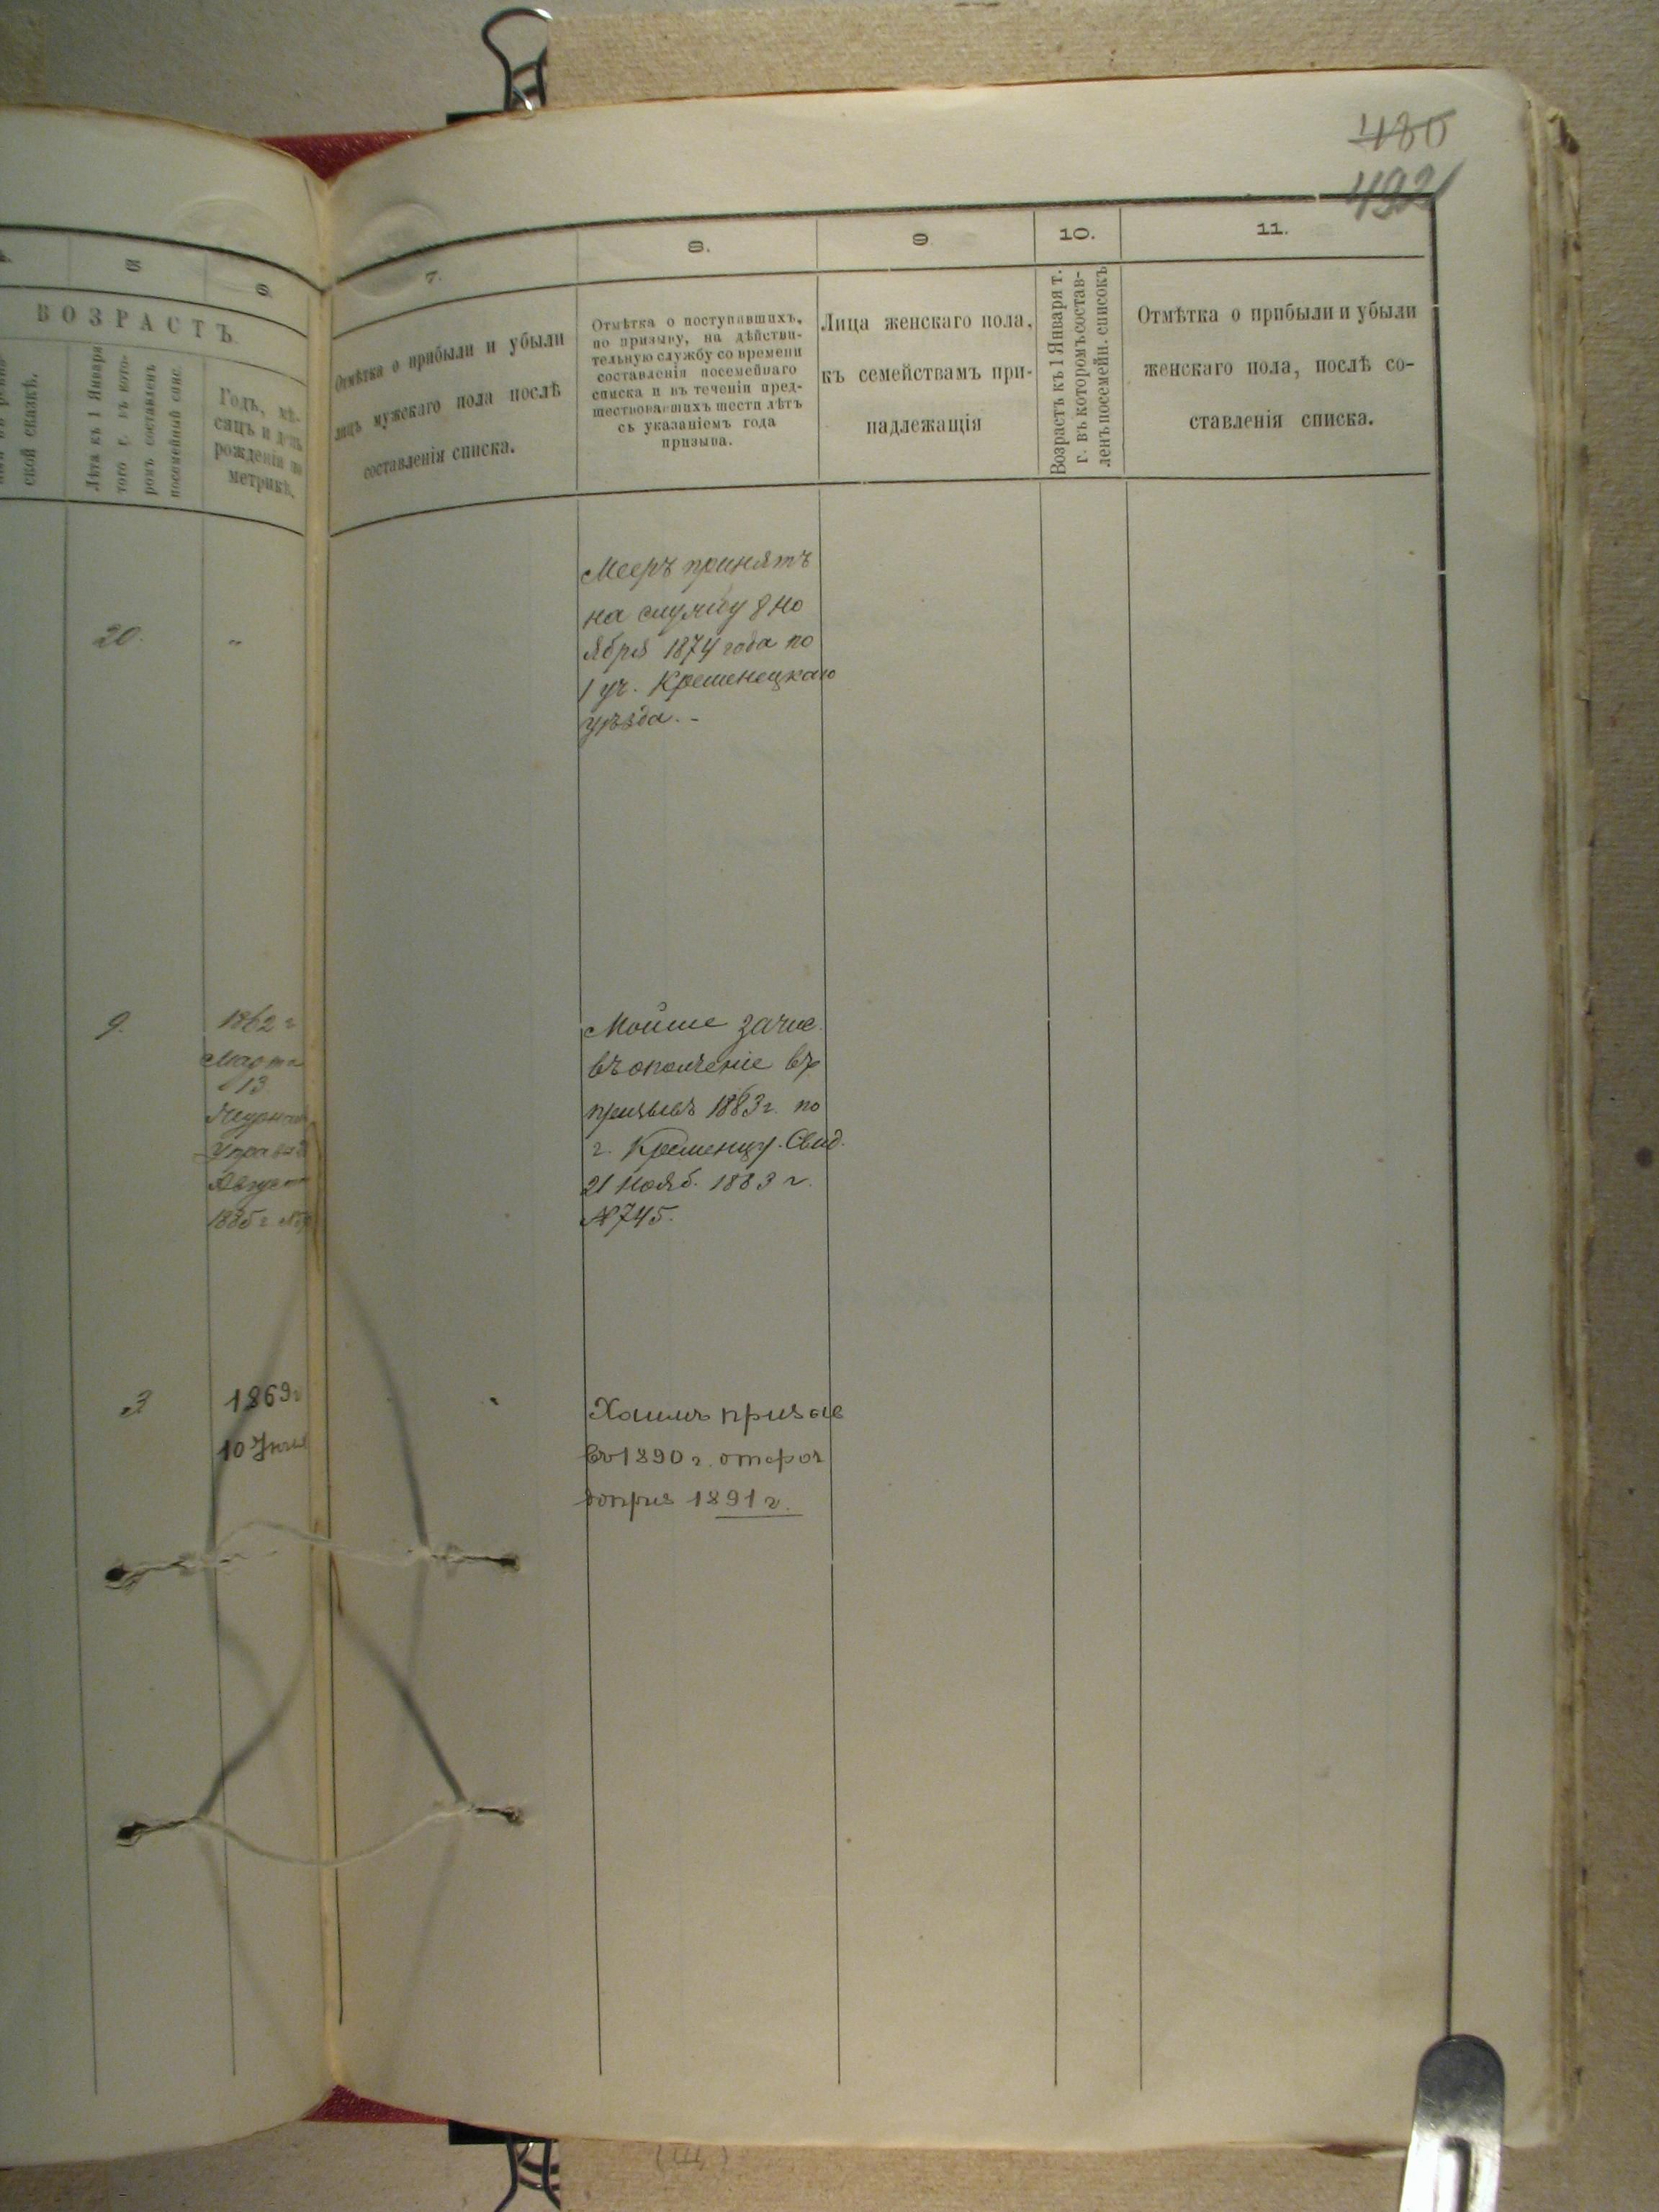 480
492
5
6.
7.
8.
9
10.
11.
ВОЗРАСТЪ
ской сказкѣ.
Лѣта къ 1 Января
того г. въ кото-
ромъ составленъ
посемейный спис.
Годъ, мѣ-
сяцъ и день
рожденія по
метрикѣ.
Отмѣтка о прибыли и убыли
лицъ мужскаго пола послѣ
составленія списка.
Отмѣтка о поступившихъ,
по призыву, на дѣйстви-
тельную службу со времени
составленія посемейнаго
списка и въ теченіи пред-
шествовавшихъ шести лѣтъ
съ указаніемъ года
призыва.
Лица женскаго пола,
къ семействамъ при-
надлежащія
Возрастъ къ 1 Января т.
г. въ которомъ состав-
ленъ посемейн. списокъ
Отмѣтка о прибыли и убыли
женскаго пола, послѣ со-
ставленія списка.
20.
"
Мееръ принятъ
на службу 8 но
ября 1874 года по
1 уч. Кременецкаго
уѣзда. -
9.
1862 г
Марта
13
Управы
Август
1885 г
Мойше зачис.
въ ополченіе въ
призывъ 1883 г. по
г. Кременцу. Свид.
21 Нояб. 1883 г.
№ 745.
3
1869 г
10
Хаимъ призыв
въ 1890 г. отсроч
до приз 1891 г.